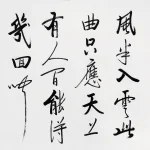 風半入雲此
曲只應天上
有人間能得
幾回聞